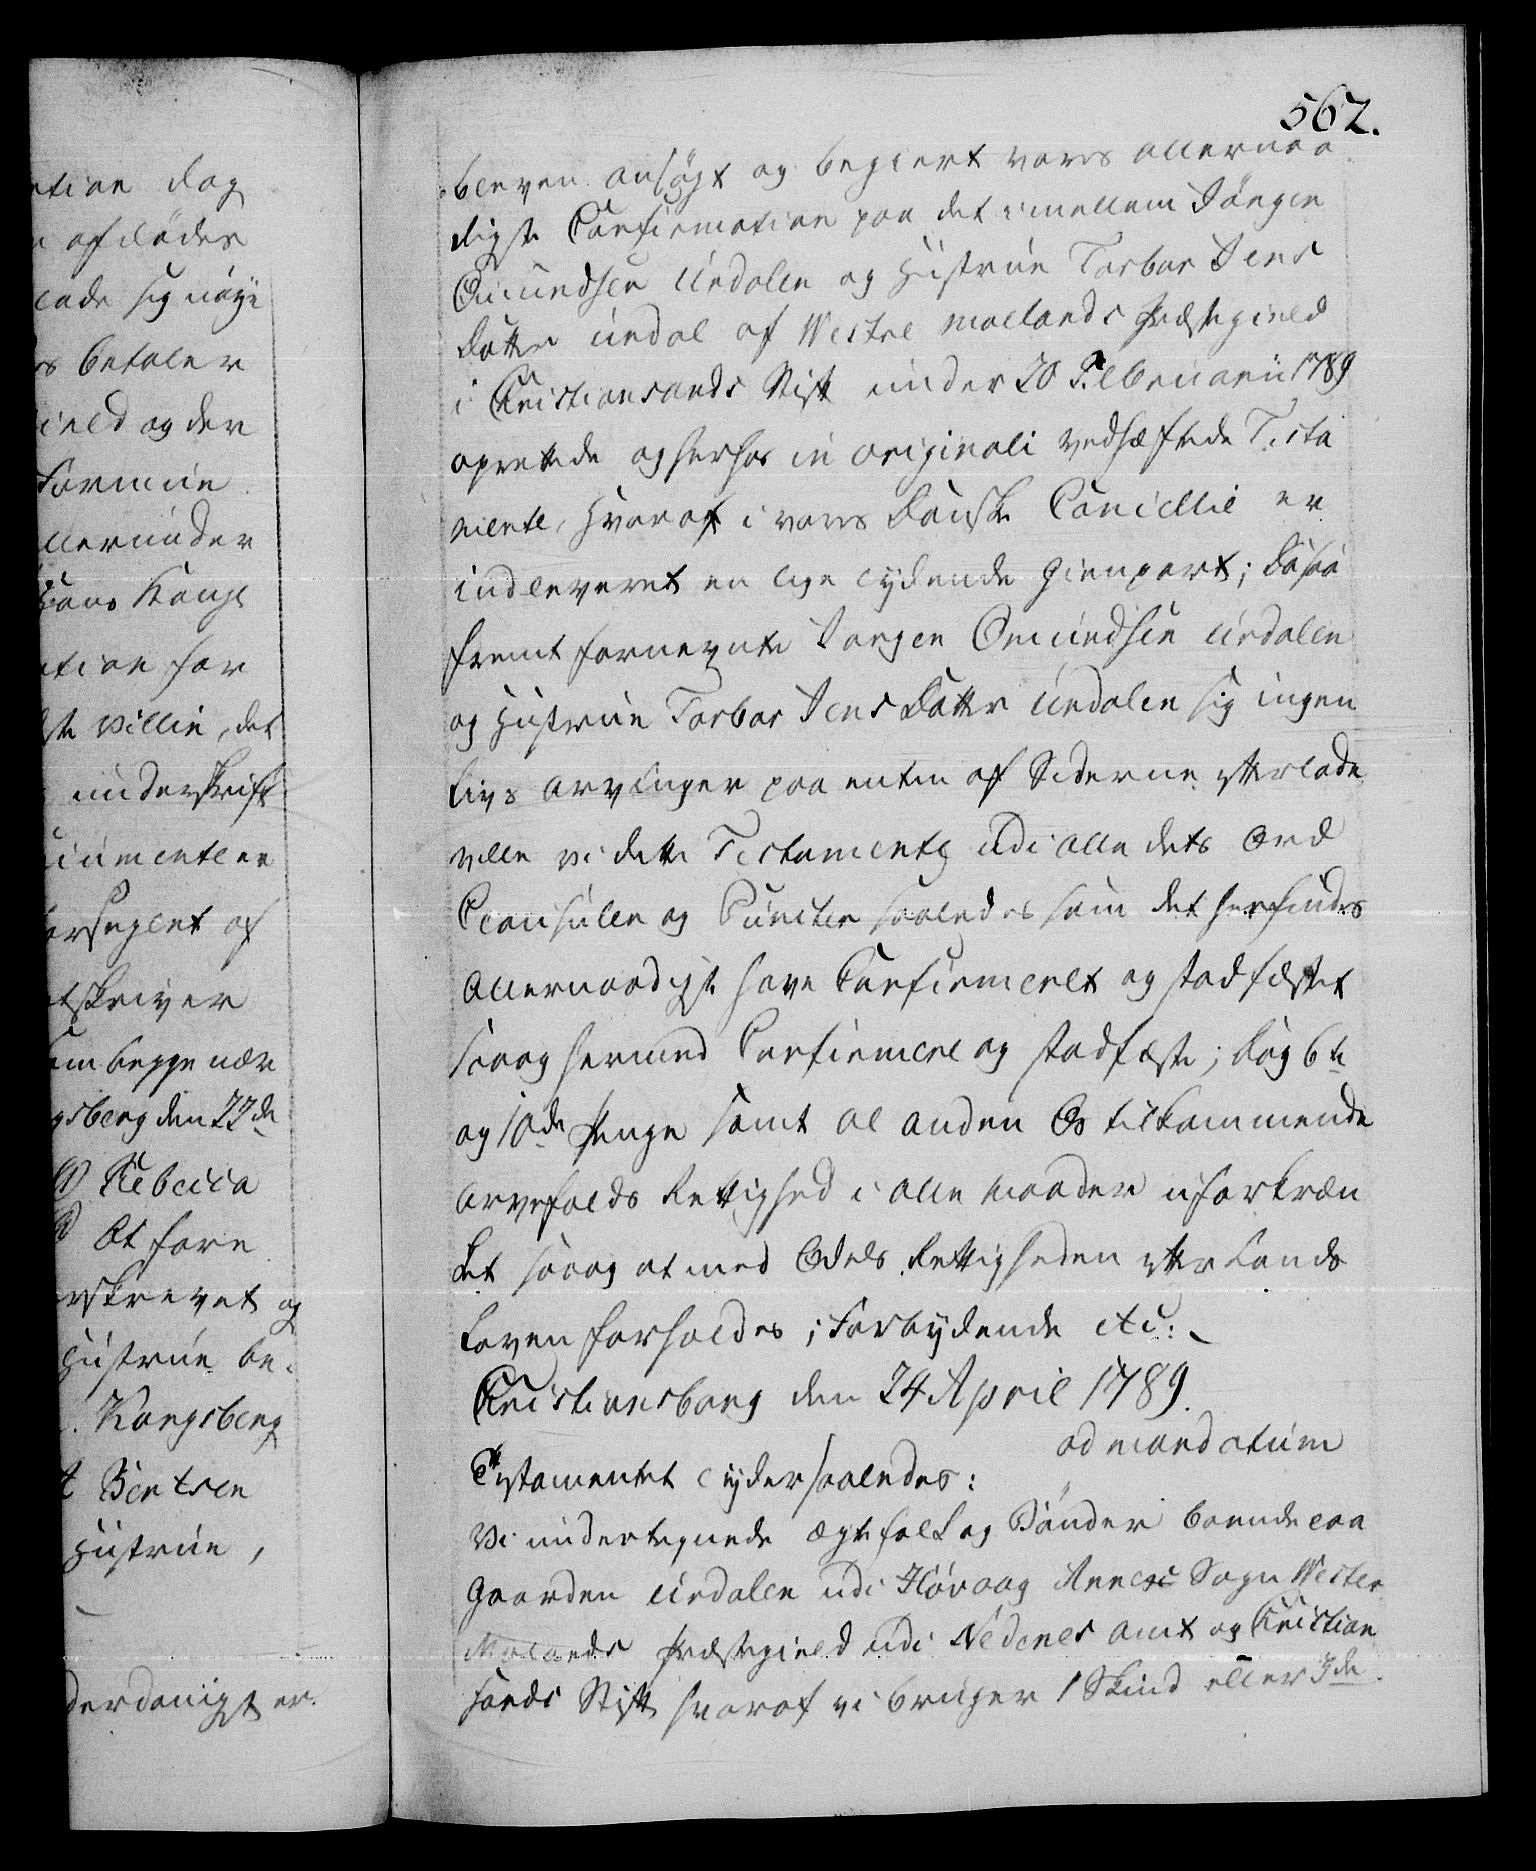 ation dog
afdødes
lade sig nøye
betaler
gield og der
Formue
allerunder
Hans Kongl
ation for
ste Villie, det
underskrift
umenteer
forseglet af
tskriver
som begge nær
gsberg den 22de
Rebecca
At fore
erskrevet og
Hustrue be-
Kongsberg
Bentsen
Hustrue,
derdanigst er
562.
bleven ansøgt og begiert vores allernaa
digste Confirmation paa det imellem Jörgen
Omundsen Urdalen og Hustrue Torbor Jens
Datter Urdal af Westre Molands Præstegield
i Christiansands Stift under 20 Februarii 1789
oprettede og herhos in originali vedhæftede Testa
mente, hvoraf i vores Danske Cancellie er
indleveret en lige lydende Gienpart; Da saa
fremt fornevnte Jörgen Omundsen Urdalen
og Hustrue Torbor Jens Datter Urdalen sig ingen
Livs Arvinger paa enten af Siderne efterlade
ville vi dette Testamente udi alle dets Ord
Clausuler og Puncter saaledes som det herfindes
Allernaadigst have Confirmeret og stadfæstet
saa og hermed Confirmere og stadfæste; Dog 6te
og 10de Penge samt al anden Os tilkommende
Arvefalds Rettighed i alle Maader uforkræn
ket saa og at med Odels Rettigheden efter Lands
Loven forholdes; Forbydende etc:
Christiansborg den 24 April 1789.
ad mandatum
Testamentet lyder saaledes:
Vi undertegnede Ægtefolk og Bönder boende paa
Gaarden Urdalen udi Høvaag Annex Sogn Wester
Molands Præstegield udi Nedenes Amt og Christian
sands Stift hvoraf vi bruger 1 Skind eller 3de